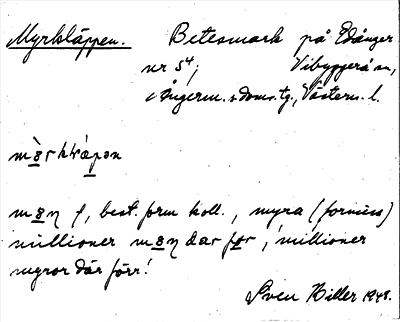 Myrkläppen. Betesmark på Edånger
nr 5⁴; Vibyggerå sn,
i Ångerm. s. doms. tg., Västern. l.
mə̀rkläpən
məɳ f, best. form koll., myra (formiss)
millioner məɳ dar før, 'millioner
myror där förr'.
Sven Hiller 1948.